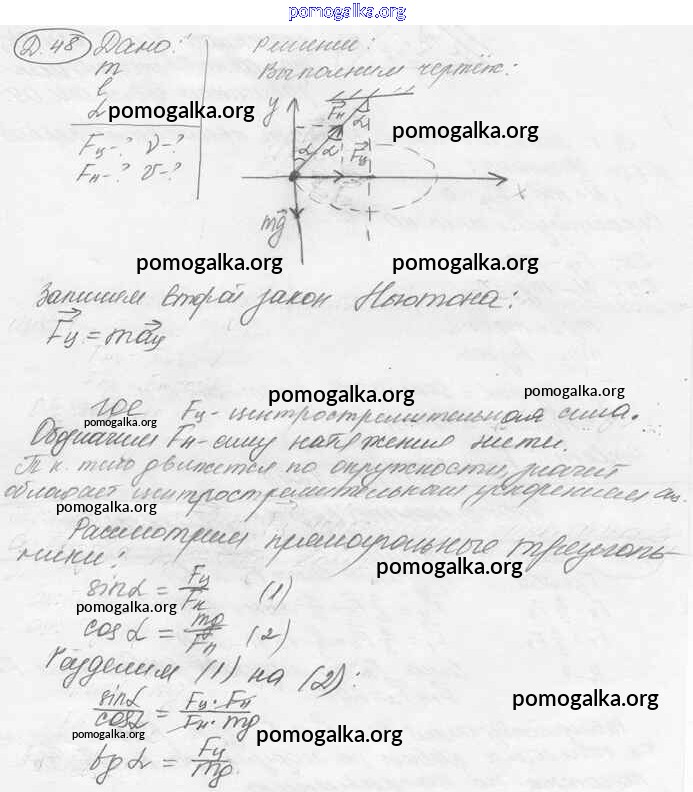 pomogalka.org
Д. 48 Дано: Решение:
m Выполним чертёж:
l
α
Fц-? ν-?
Fн-? υ-?
y Fн α
α α Fц
x
mg
pomogalka.org
pomogalka.org
pomogalka.org pomogalka.org
Запишем второй закон Ньютона:
Fц = maц
pomogalka.org pomogalka.org
где Fц - центростремительная сила.
pomogalka.org
Обозначим Fн - силу натяжения нити.
Т.к. тело движется по окружности, значит
обладает центростремительным ускорением aц.
pomogalka.org
Рассмотрим прямоугольные треуголь-
ники:
pomogalka.org
sinα = Fц/Fн (1)
pomogalka.org
cosα = mg/Fн (2)
Разделим (1) на (2):
sinα/cosα = Fц · Fн/Fн · mg
pomogalka.org
pomogalka.org pomogalka.org
tgα = Fц/mg.